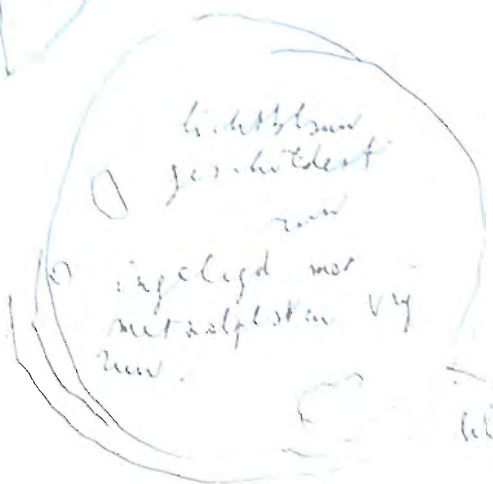 lichtblauw
geschildert
ruw
ingelegd met
metaalplaten vrij
ruw.